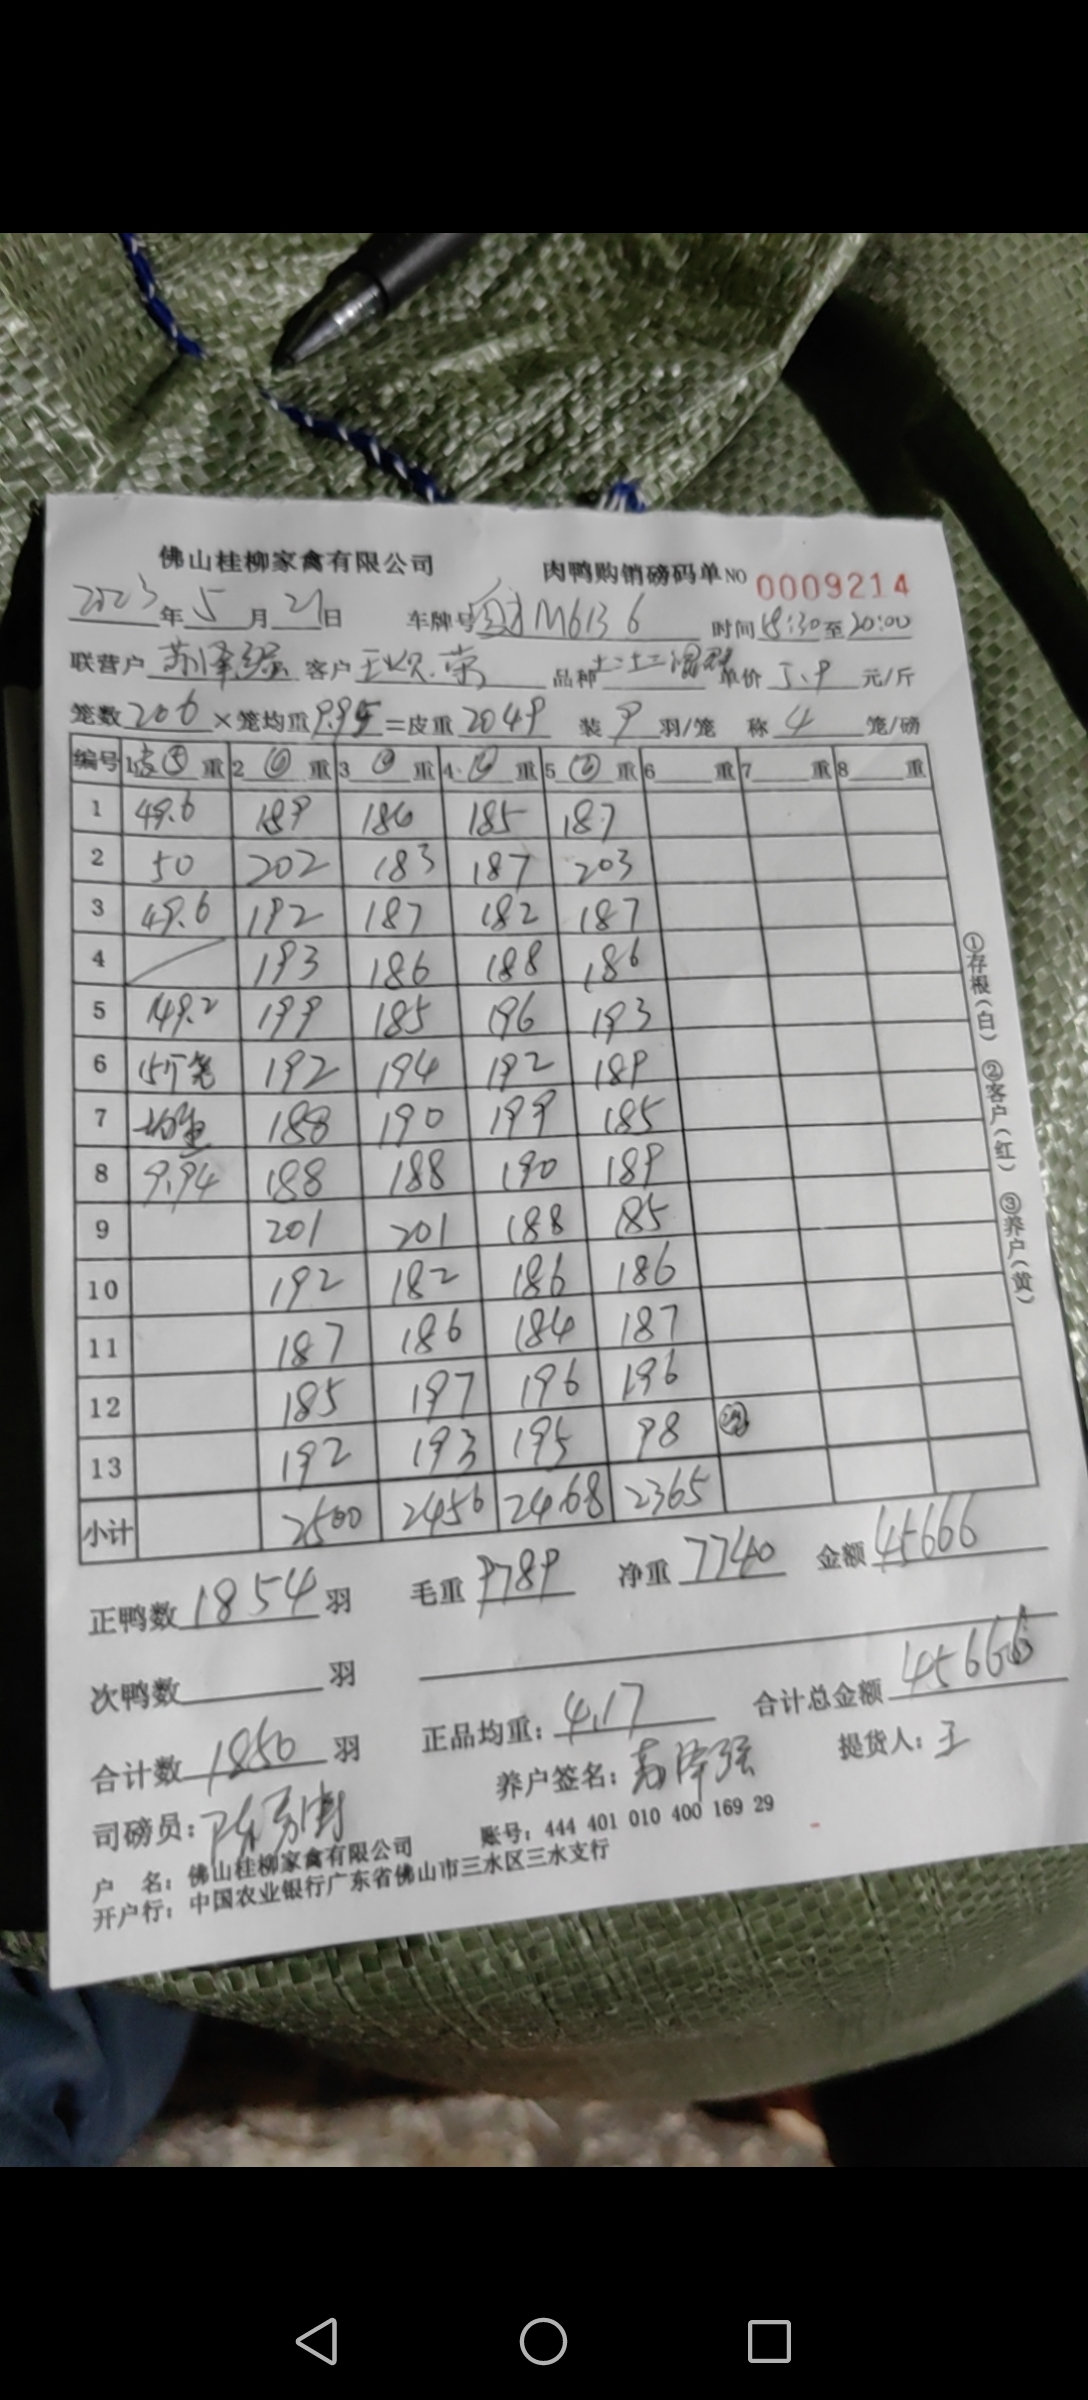 佛山桂柳家禽有限公司 肉鸭购销磅码单 NO 0009214
2023年5月21日 车牌号 M6136 时间18:30至20:00
联营户 苏泽强 客户 品种 单价5.9元/斤
笼数206×笼均重9.95=皮重2049 装9羽/笼 称4笼/磅
编号 1 重 2 重 3 重 4 重 5 重 6 重 7 重 8 重
1 49.6 189 186 185 187
2 50 202 183 187 203
3 49.6 192 187 182 187
4 193 186 188 186
5 149.2 199 185 196 193
6 15个笼 192 194 192 189
7 均重 188 190 199 185
8 9.94 188 188 190 189
9 201 201 188 185
10 192 182 186 186
11 187 186 184 187
12 185 197 196 196
13 192 193 195 98
小计 2500 2456 2468 2365
正鸭数1854羽 毛重9789 净重7740 金额45666
次鸭数 羽
合计数1850羽 正品均重：4.17 合计总金额45666
司磅员： 养户签名：苏泽强 提货人：王
户 名：佛山桂柳家禽有限公司 账号：444 401 010 400 169 29
开户行：中国农业银行广东省佛山市三水区三水支行
①存根（白） ②客户（红） ③养户（黄）